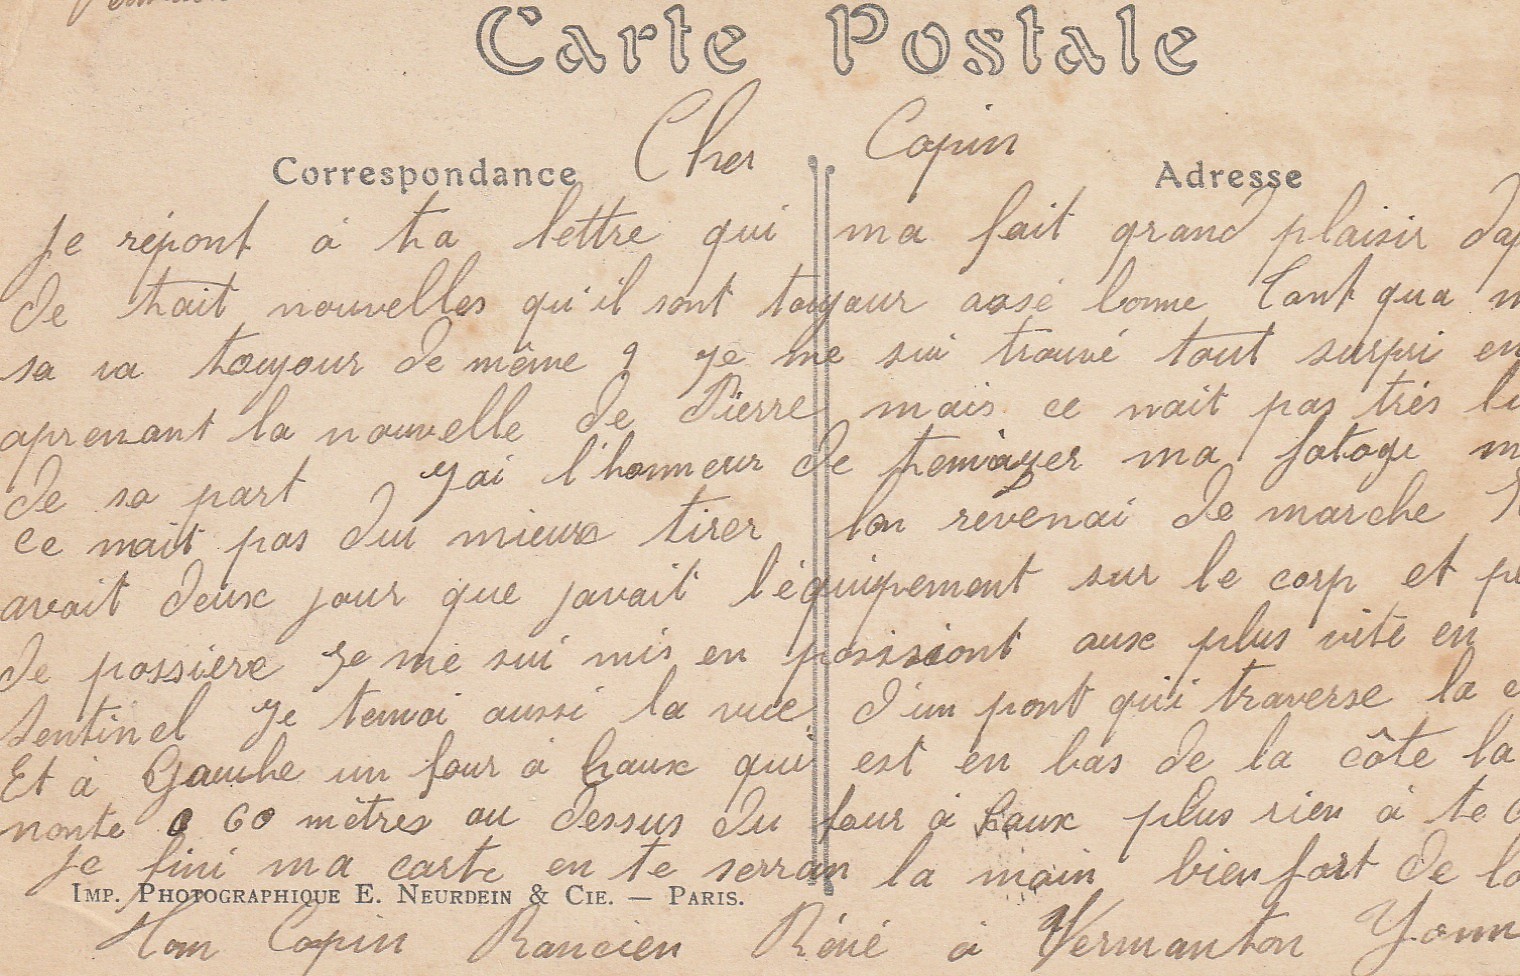 Carte Postale
Cher Copin
Correspondance
Adresse
Je répont à ta lettre qui ma fait grand plaisir dap
de tait nouvelles qu'il sont toujour assé bonne Cant qua m
sa va toujour de même je me sui trouvé tout surpri en
aprenant la nouvelle de Pierre mais ce nait pas très bi
de sa part j'ai l'honneur de ma fotogi m
ce nait pas dui mieux tirer lon revenai de marche
avait deux jour que javait l'équipement sur le corp et pl
de possiere Je me sui mis en possisiont aux plus vite en
sentinel Je tenvoi aussi la vue d'un pont qui traverse la
Et à Gauche un four à haux qui est en bas de la côte la
monte à 60 mètres au dessus du four à haux plus rien à te d
Je fini ma carte en te serran la main bien fort de lo
IMP. PHOTOGRAPHIQUE E. NEURDEIN & CIE. — PARIS.
Ton Copin Rancien Réné à Vermanton Yonn